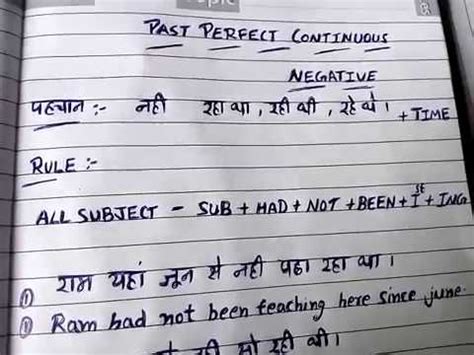 PAST PERFECT CONTINUOUS
NEGATIVE
पहचान :- नही रहा था, रही थी, रहे थे। + TIME
RULE :-
ALL SUBJECT - SUB + HAD + NOT + BEEN + Ist + ING
① राम यहां जून से नही पढा रहा था।
① Ram had not been teaching here since june.
नही सो रही थी।